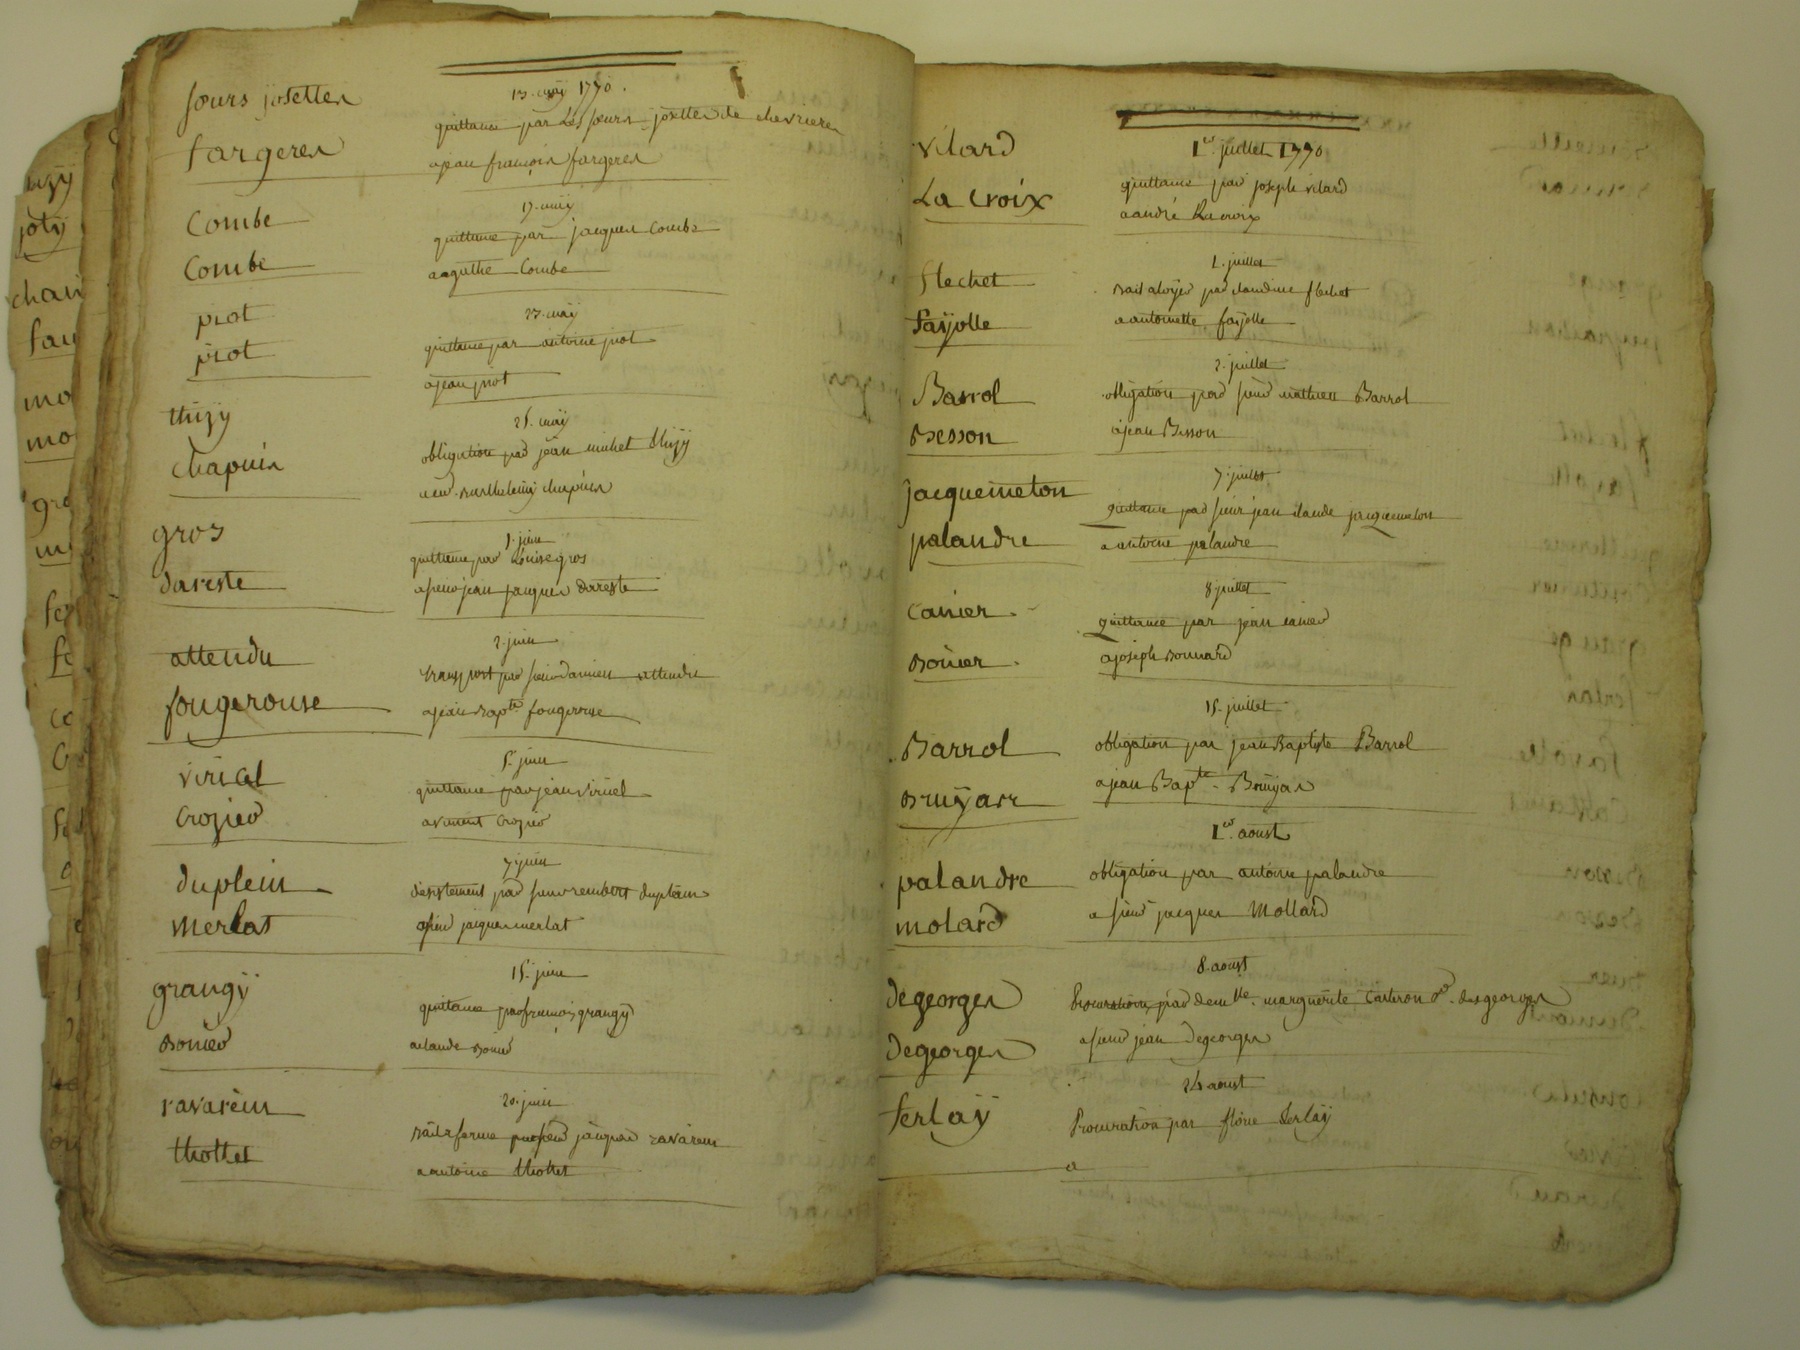 sœurs josettes
fargeres
13. may 1770.
quittance par Les sœurs josettes de chevrieres
a jean françois fargeres
Combe
Combe
19. may
quittance par jacques Combe
a agathe Combe
piot
piot
23. may
quittance par antoine piot
a jean piot
thizy
Chapuis
25. maÿ
obligation par jean michel thizy
a sr. Barthelemy chapuis
gros
dareste
1. juin
quittance par Louise gros
a sieur jean jacques dareste
attendu
fougerouse
2. juin
transport par sieur damien attendu
a jean Bapte. fougerouse
viricel
Crozier
5. juin
quittance par jean viricel
a vincent Crozier
duplein
Merlat
7 juin
desistement par sieur rembert duplein
a sieur jacques merlat
grangÿ
Bonier
15. juin
quittance par francois grangy
a claude Bonier
ravarein
thollet
20. juin
Bail a ferme par sieur jacques ravarein
a antoine thollet
Vilard
La Croix
1er. juillet 1770
quittance par joseph vilard
a andré La croix
flechet
faÿolle
1. juillet
Bail a loÿer par claudine flechet
a antoinette faÿolle
Barrol
Besson
2. juillet
obligation par sieur mathieu Barrol
a jean Besson
jacquemeton
palandre
7. juillet
quittance par sieur jean claude jacquemeton
a antoine palandre
Canier
Bonier
8 juillet
quittance par jean canier
a joseph Bonnard
Barrol
Bruÿarr
15. juillet
obligation par jean Baptiste Barrol
a jean Bapte. Bruÿas
palandre
molard
1er. aoust
obligation par antoine palandre
a sieur jacques Mollard
degeorges
Degeorges
8. aoust
Procuration par demlle. marguerite Carteron desgeorges
a sieur jean Degeorges
ferlaÿ
24 aoust
Procuration par flórie ferlaÿ
a